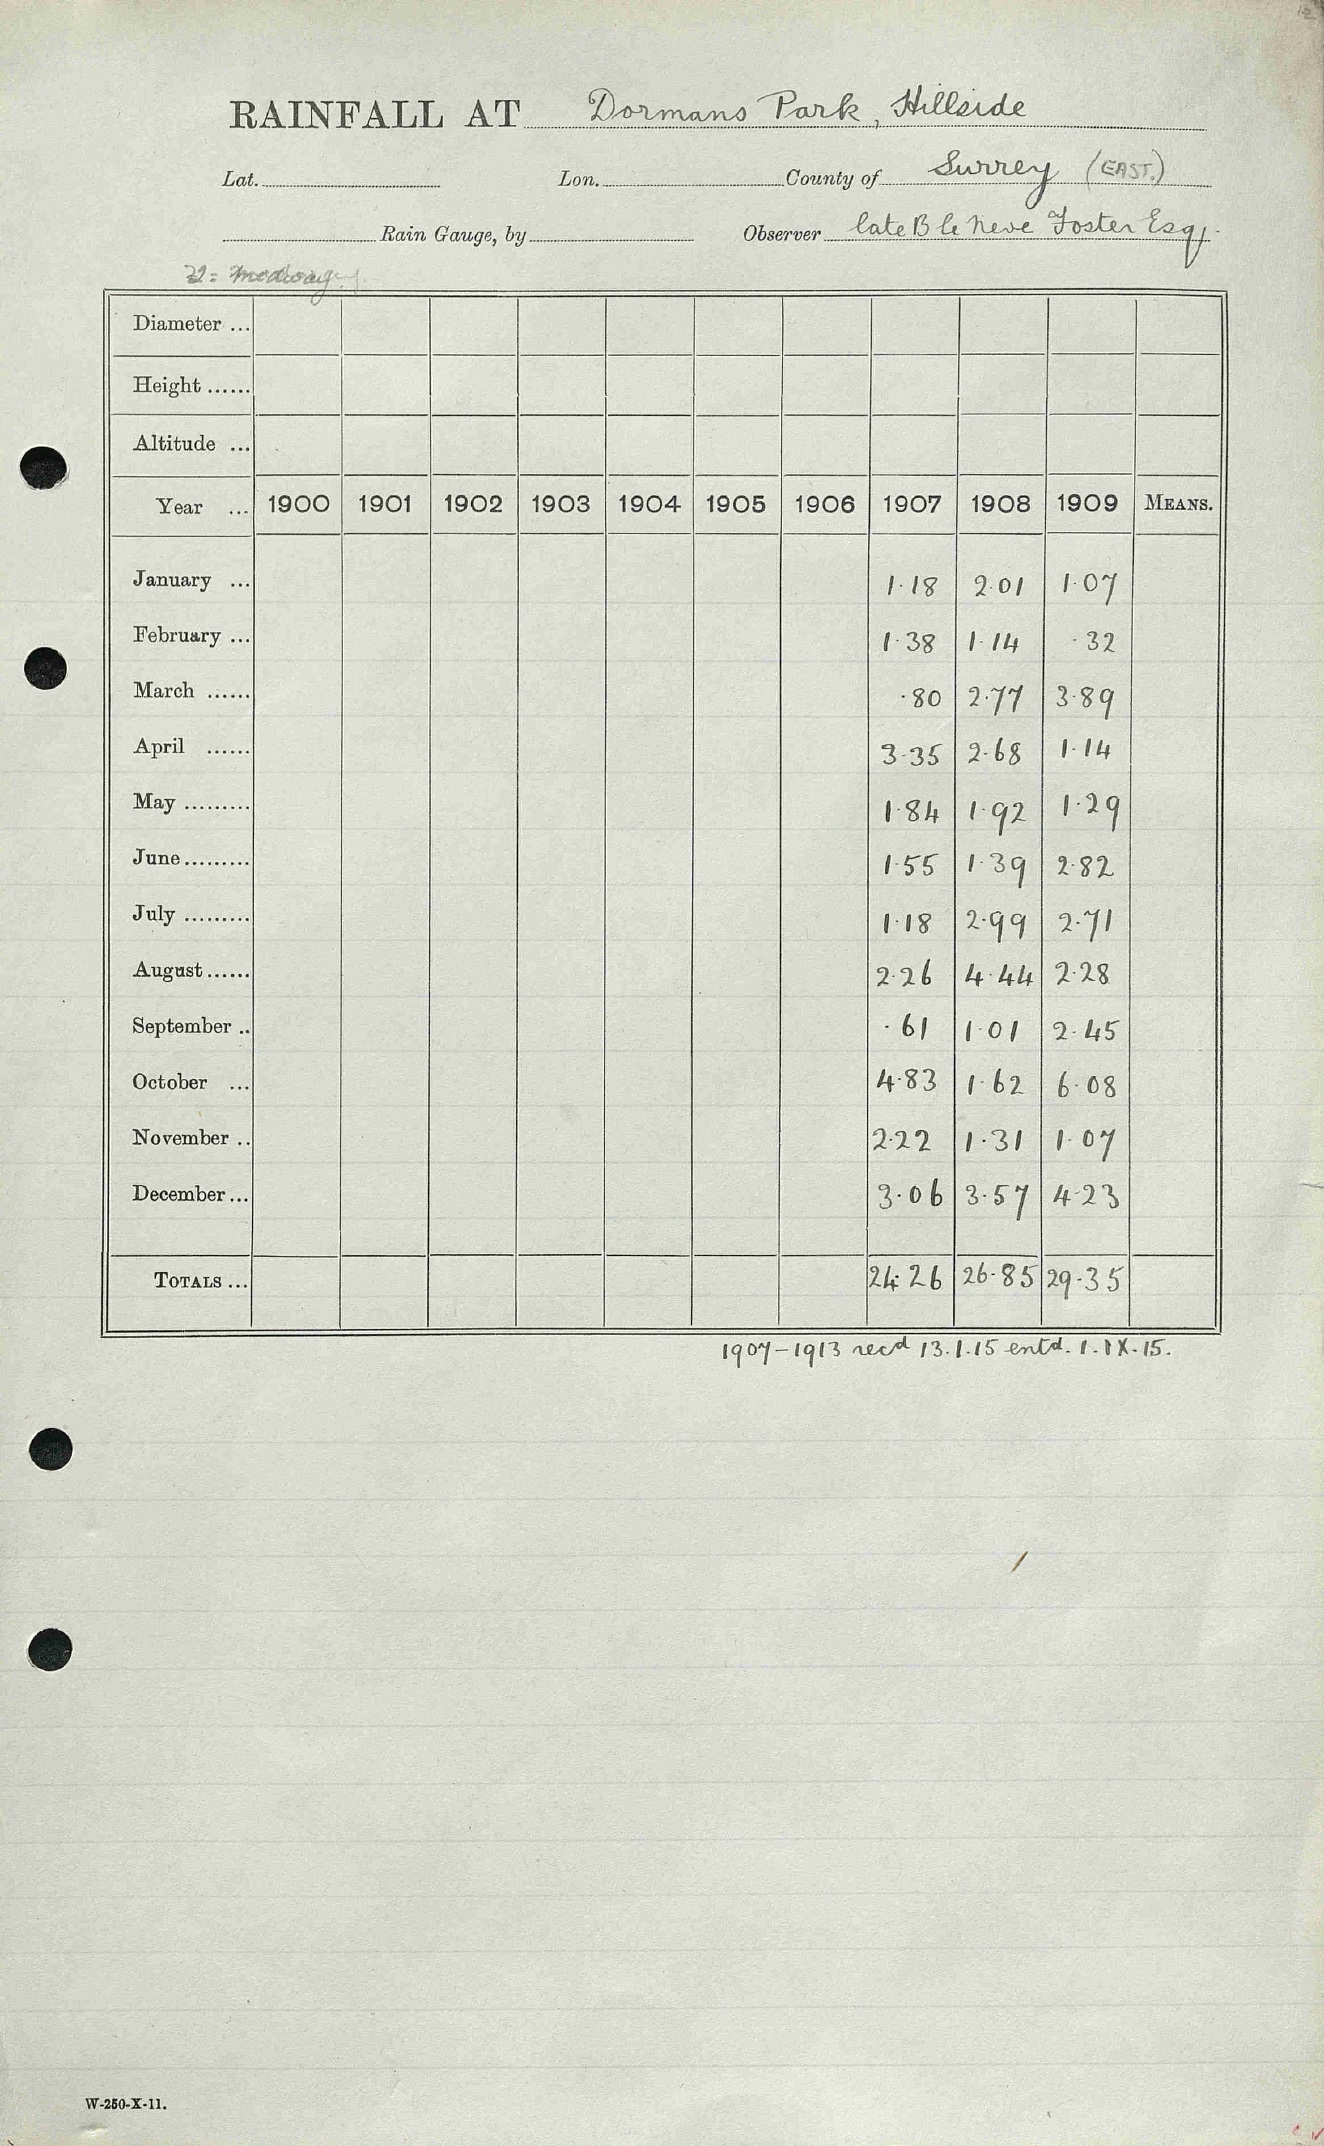 RAINFALL AT Dormans Park, Hillside
Lat. Lon. County of Surrey (EAST.)
Rain Gauge, by Observer late B le Neve Foster Esq.
Medway
Diameter ...
Height ......
Altitude ...
Year ... 1900 1901 1902 1903 1904 1905 1906 1907 1908 1909 MEANS.
January ... 1·18 2·01 1·07
February ... 1·38 1·14 ·32
March ...... ·80 2·77 3·89
April ...... 3·35 2·68 1·14
May ......... 1·84 1·92 1·29
June ......... 1·55 1·39 2·82
July ......... 1·18 2·99 2·71
August ...... 2·26 4·44 2·28
September .. ·61 1·01 2·45
October ... 4·83 1·62 6·08
November .. 2·22 1·31 1·07
December ... 3·06 3·57 4·23
TOTALS ... 24·26 26·85 29·35
1907–1913 recd 13.1.15 entd. 1.IX.15.
W-250-X-11.